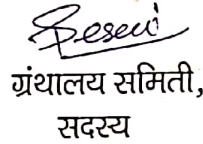 ग्रंथालय समिती,
सदस्य